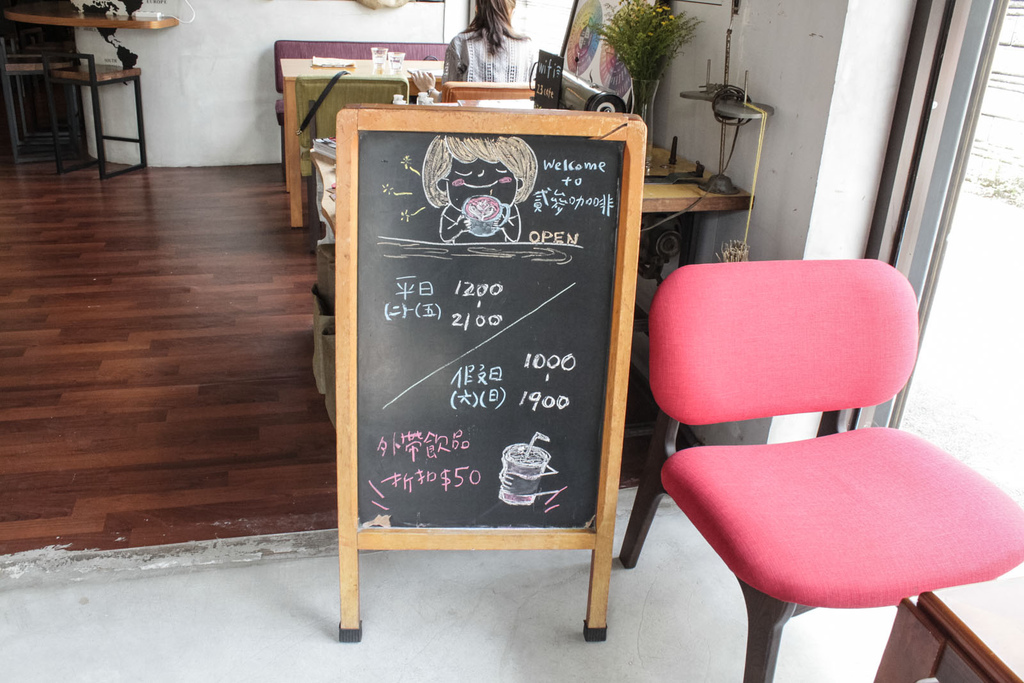 Welcome
to
貳叄咖啡
OPEN
平日
(二)-(五)
1200
-
2100
假日
(六)(日)
1000
-
1900
外帶飲品
折扣$50